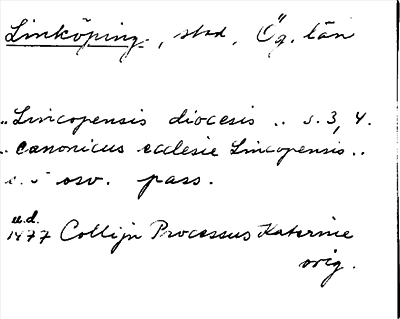 Linköping, stad, Ög. län
"Lincopensis diocesis .. s. 3, 4.
.. canonicus ecclesie Lincopensis ..
s. 5 osv. pass.
u.d.
1477 Collijn Processus Katerine
orig.